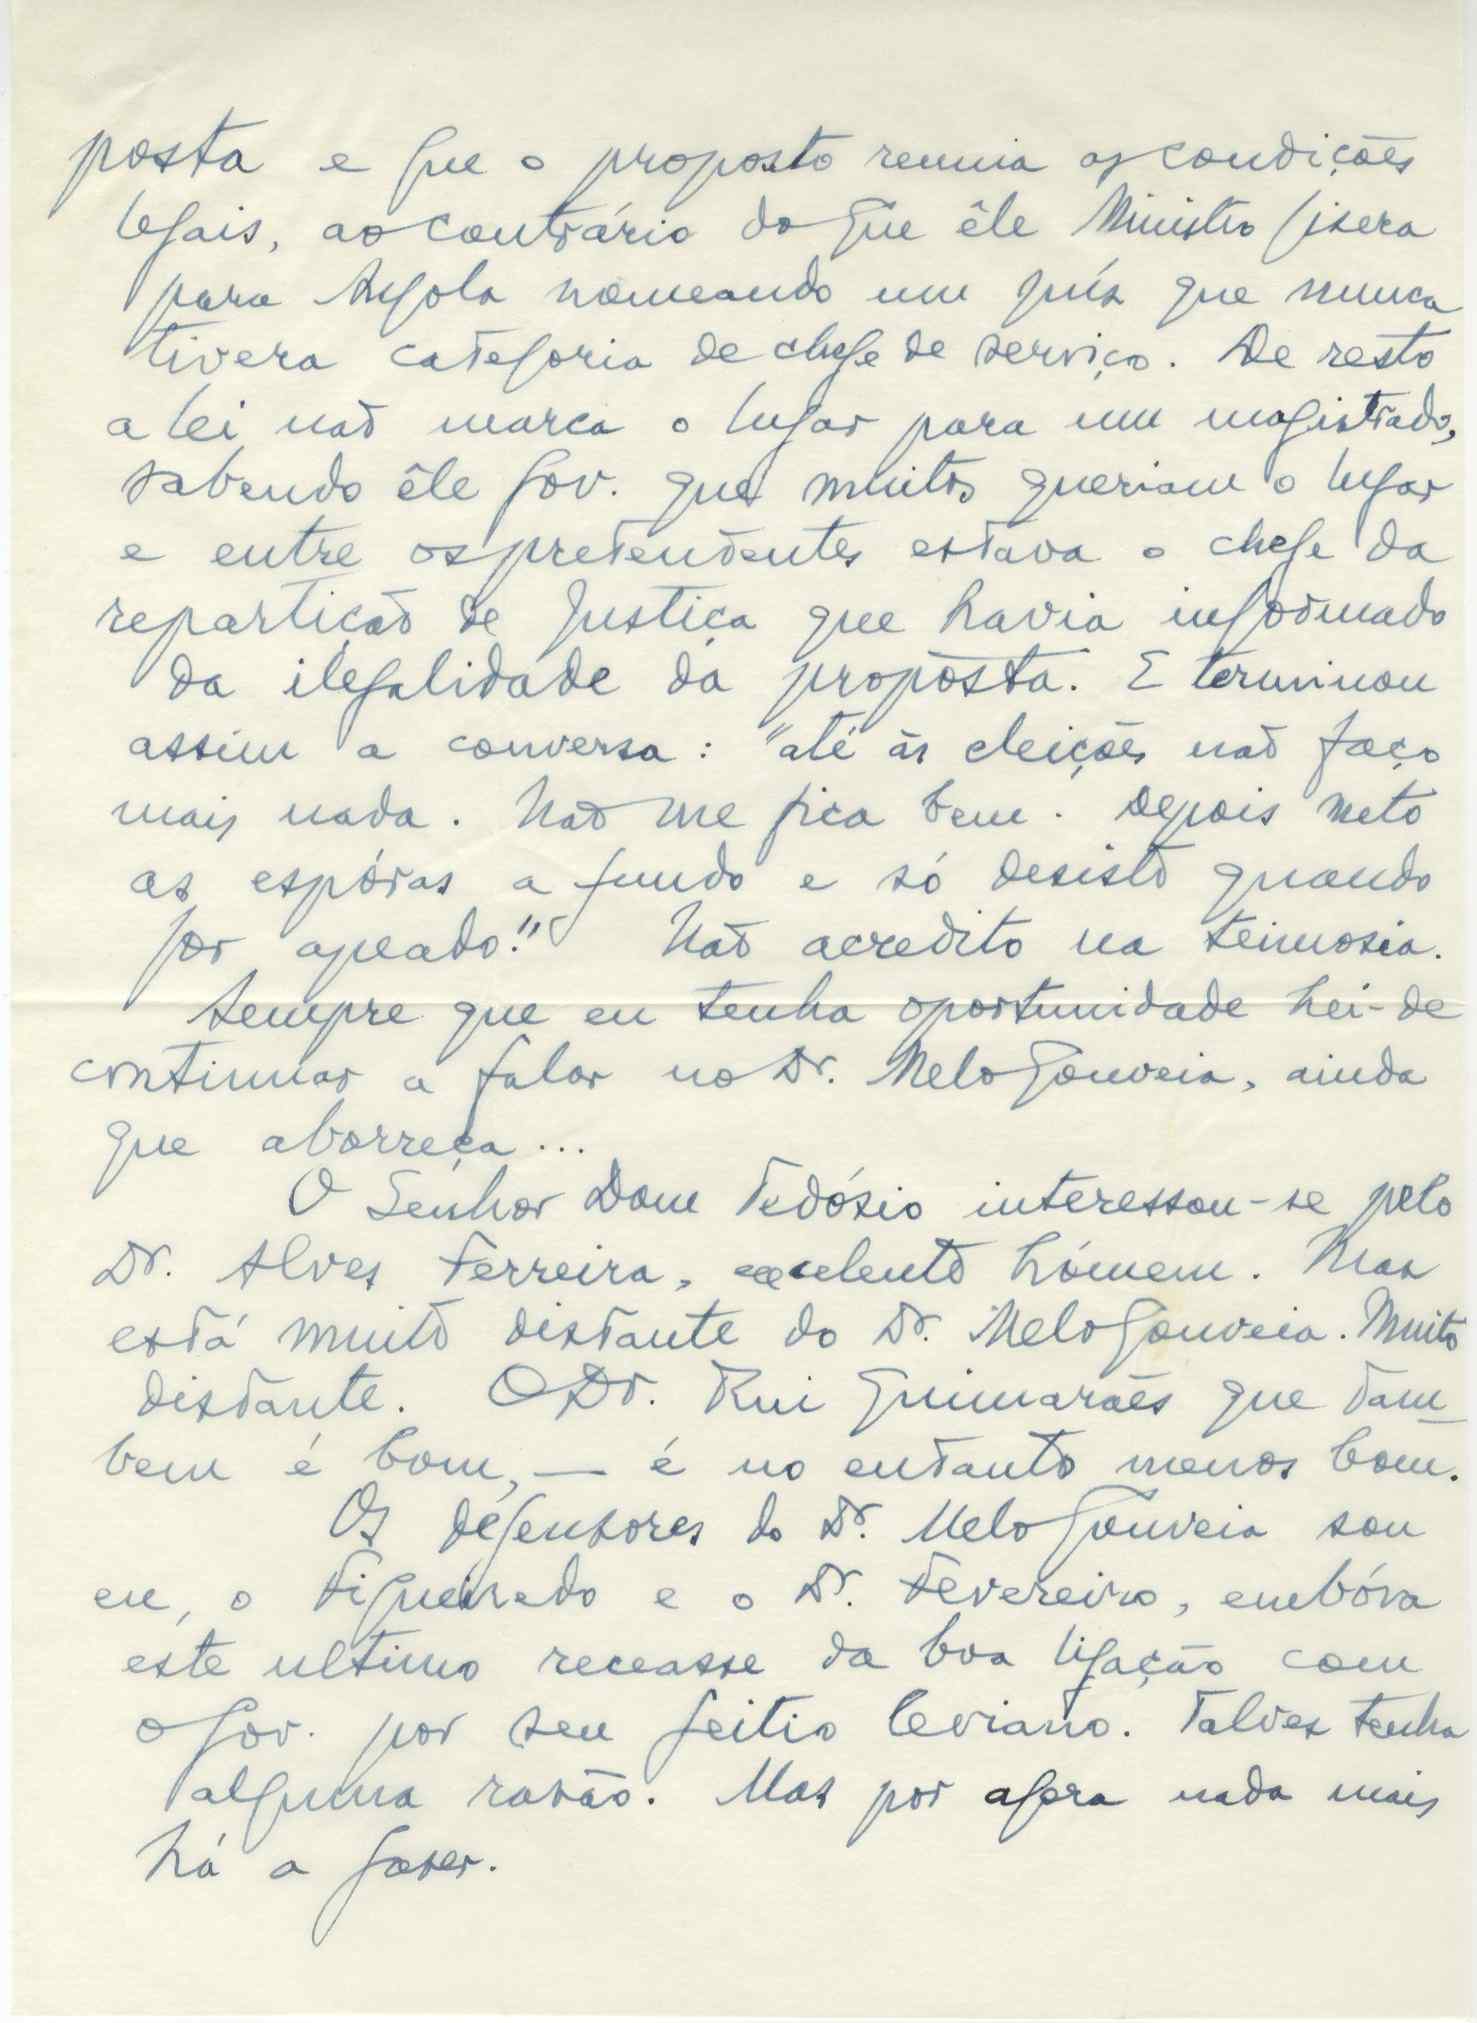 posta e que o proposto reunia as condições
legais, ao contrário do que êle Ministro fisera
para Angola nomeando um juís que nunca
tivera categoria de chefe de serviço. De resto
a lei não marca o lugar para um magistrado,
sabendo êle Gov. que muitos queriam o lugar
e entre os pretendentes estava o chefe da
repartição de Justiça que havia informado
da ilegalidade da propósta. E terminou
assim a conversa: "até às eleições não faço
mais nada. Não me fica bem. Depois meto
as espóras a fundo e só desisto quando
for apeado!" Não acredito na teimosia.
Sempre que eu tenha oportunidade hei-de
continuar a falar no Dr. Melo Gouveia, ainda
que aborreça...
O Senhor Dom Tedósio interessou-se pelo
Dr. Alves Ferreira, excelente hómem. Mas
está muito distante do Dr. Melo Gouveia. Muito
distante. O Dr. Rui Guimarães que tam-
bem é bom, — é no entanto menos bom.
Os defensores do Dr. Melo Gouveia sou
eu, o Figueiredo e o Dr. Fevereiro, embóra
este ultimo receasse da boa ligação com
o Gov. por seu feitio leviano. Talves tenha
alguma rasão. Mas por agora nada mais
há a faser.